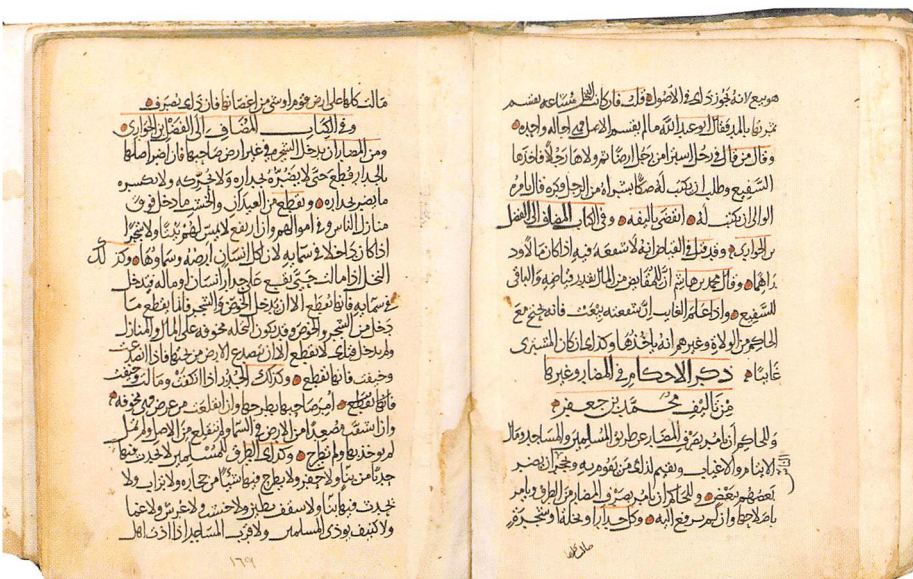 هو بيع لانه يجوز ذلك في الاصول قلت فان كانت النخل مشاعه يقسم
ثمرتها بالمد فقال ابو عبدالله مالم يقسم الاصل فهي احاله واحده
وقال من قال في رجل اشترا من رجل ارضا ثم ولاها رجلا فاخذها
الشفيع وطلب ان يكتب له صكا بشراه من الرجل فكره قال يامره
الوالي ان يكتب له انقضى باليقه وفي الكتاب المضاف الى الفضل
بن الحواري وقد قيل في القياض انه لا شفعه فيه اذا كان
وقال محمد بن هاشم ان للمقايض من المال بقدر قياضه والباقي
للشفيع واذا علم الغايب ان شفعته بيعت فانه يحتج مع
الحاكم من الولاة وغيرهم انه ياخذها وكذلك ان كان المشتري
غايبا
ذكر الاحكام في المضار وغيرها
من تاليف محمد بن جعفر
وللحاكم ان يامر بصرف المضار عن طريق المسلمين والمساجد ومال
الايتام والاغياب ويقيم لذلك من يقوم به ويحجر ان يضر
بعضهم ببعض وللحاكم ان يامر بصرف المضار من الطرق ويامر
باصلاحها وان لم يرفع اليه وكل جدار او نخله او شجره
مالت كلها على ارض قوم او شي من اغصانها فان ذلك يصرف
وفي الكتاب المضاف الى الفضل بن الحواري
ومن المضار ان يدخل الشجره في غير ارض صاحبها فان اضر اصلها
بالجدار قطع حتى لا يضره بجداره ولا يحركه ولا يكسره
ما يضر جداره ويقطع من العيدان والخشب ما دخل فوق
منازل الناس وفي اموالهم وان ارتفع لا يمس لهم بيتا ولا شجرا
اذا كان داخلا في سمايه لان لكل انسان ارضه وسماوها وكذلك
النخل اذا مالت حتى تقع على جدار انسان او ماله فتدخل
في سمايه فانها تقطع الا ان يدخل الخوص والشجر فانما يقطع ما
دخل من الشجر والخوص وقد يكون النخله مخوفه على المال والمنازل
ولم يدخل فتلك لا تقطع الا ان يصدع الارض من تحتها فاذا انصدعت
وخيفت فانها تقطع وكذلك الجدر اذا انكفت ومالت وخيفت
فانها تقطع امر صاحبها بطرحها وان انقلعت من عرض فيه مخوفه
وان انشقت صعدا من الارض في السما ولم تنقلع من الاصل ولم تمل
لم يوخذ بها ولم تطرح وكذلك الطرق للمسلمين لا يحدث فيها
حدثا من بنا ولا حفر ولا يطرح فيها شيا من حجاره ولا تراب ولا
يحدث فيها بنا ولا سقف بطين ولا خشب ولا غرس ولا غما
ولا كنيف يوذي المسلمين ولا قرب المساجد اذا اذت اهل
١٦٩